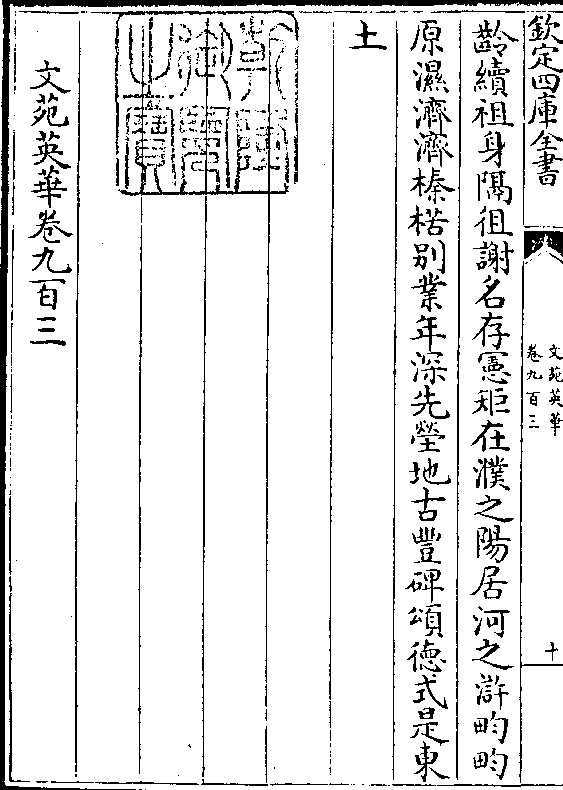 欽定四庫全書
文苑英華
卷九百三
十
齡續祖身隔徂謝名存憲矩在濮之陽居河之滸畇畇
原濕濟濟榛楛别業年深先塋地古豐碑頌德式是東
土
乾隆
御覽
之寶
文苑英華卷九百三